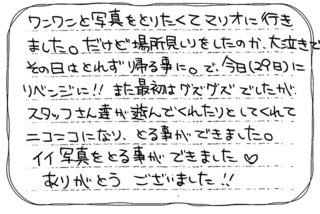 ワンワンと写真をとりたくてマリオに行き
ました。だけど場所見しりをしたのか、大泣きで
その日はとれずり帰る事に。で、今日(29日)に
リベンジに!! また最初はグズグズでしたが、
スタッフさん達が遊んでくれたりとしてくれて
ニコニコになり、とる事ができました。
イイ写真をとる事ができました♡
ありがとう ございました!!